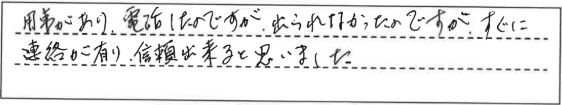 用事があり、電話したのですが、出られなかったのですが、すぐに
連絡が有り、信頼出来ると思いました